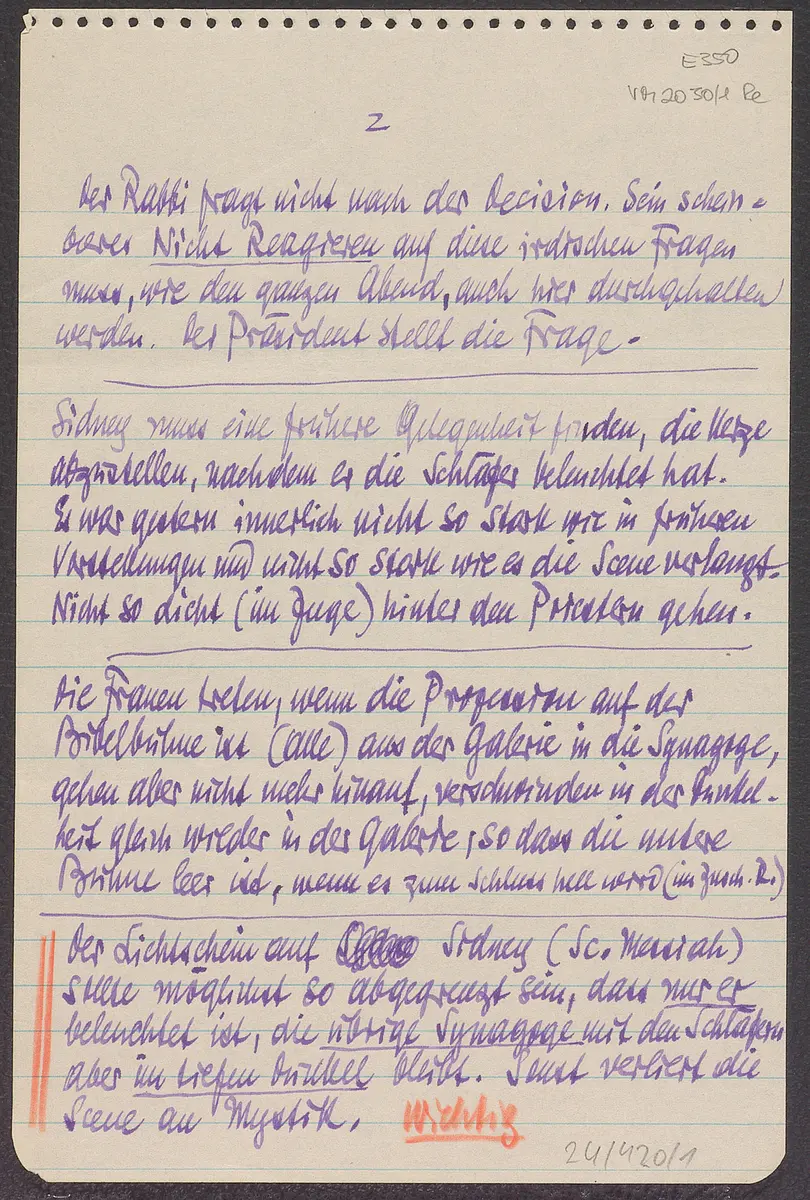 E350
VM 2030/1 Re
2
Der Rabbi fragt nicht nach der Decision. Sein schein-
bares Nicht Reagieren auf diese irdischen Fragen
muss, wie den ganzen Abend, auch hier durchgehalten
werden. Der Präsident stellt die Frage.
Sidney muss eine frühere Gelegenheit finden, die Kerze
abzustellen, nachdem er die Schläfer beleuchtet hat.
Er war gestern innerlich nicht so stark wie in früheren
Vorstellungen und nicht so stark wie es die Scene verlangt.
Nicht so dicht (im Zuge) hinter den Priestern gehen.
Die Frauen treten, wenn die Prozession auf der
Bibelbühne ist (alle) aus der Galerie in die Synagoge,
gehen aber nicht mehr hinauf, verschwinden in der Dunkel-
heit gleich wieder in der Galerie, so dass die untere
Bühne leer ist, wenn es zum Schluss hell wird (im Zusch. R.)
Der Lichtschein auf Sidney (Sc. Messiah)
sollte möglichst so abgegrenzt sein, dass nur er
beleuchtet ist, die übrige Synagoge mit den Schläfern
aber im tiefen Dunkel bleibt. Sonst verliert die
Scene an Mystik. Wichtig
24/420/1